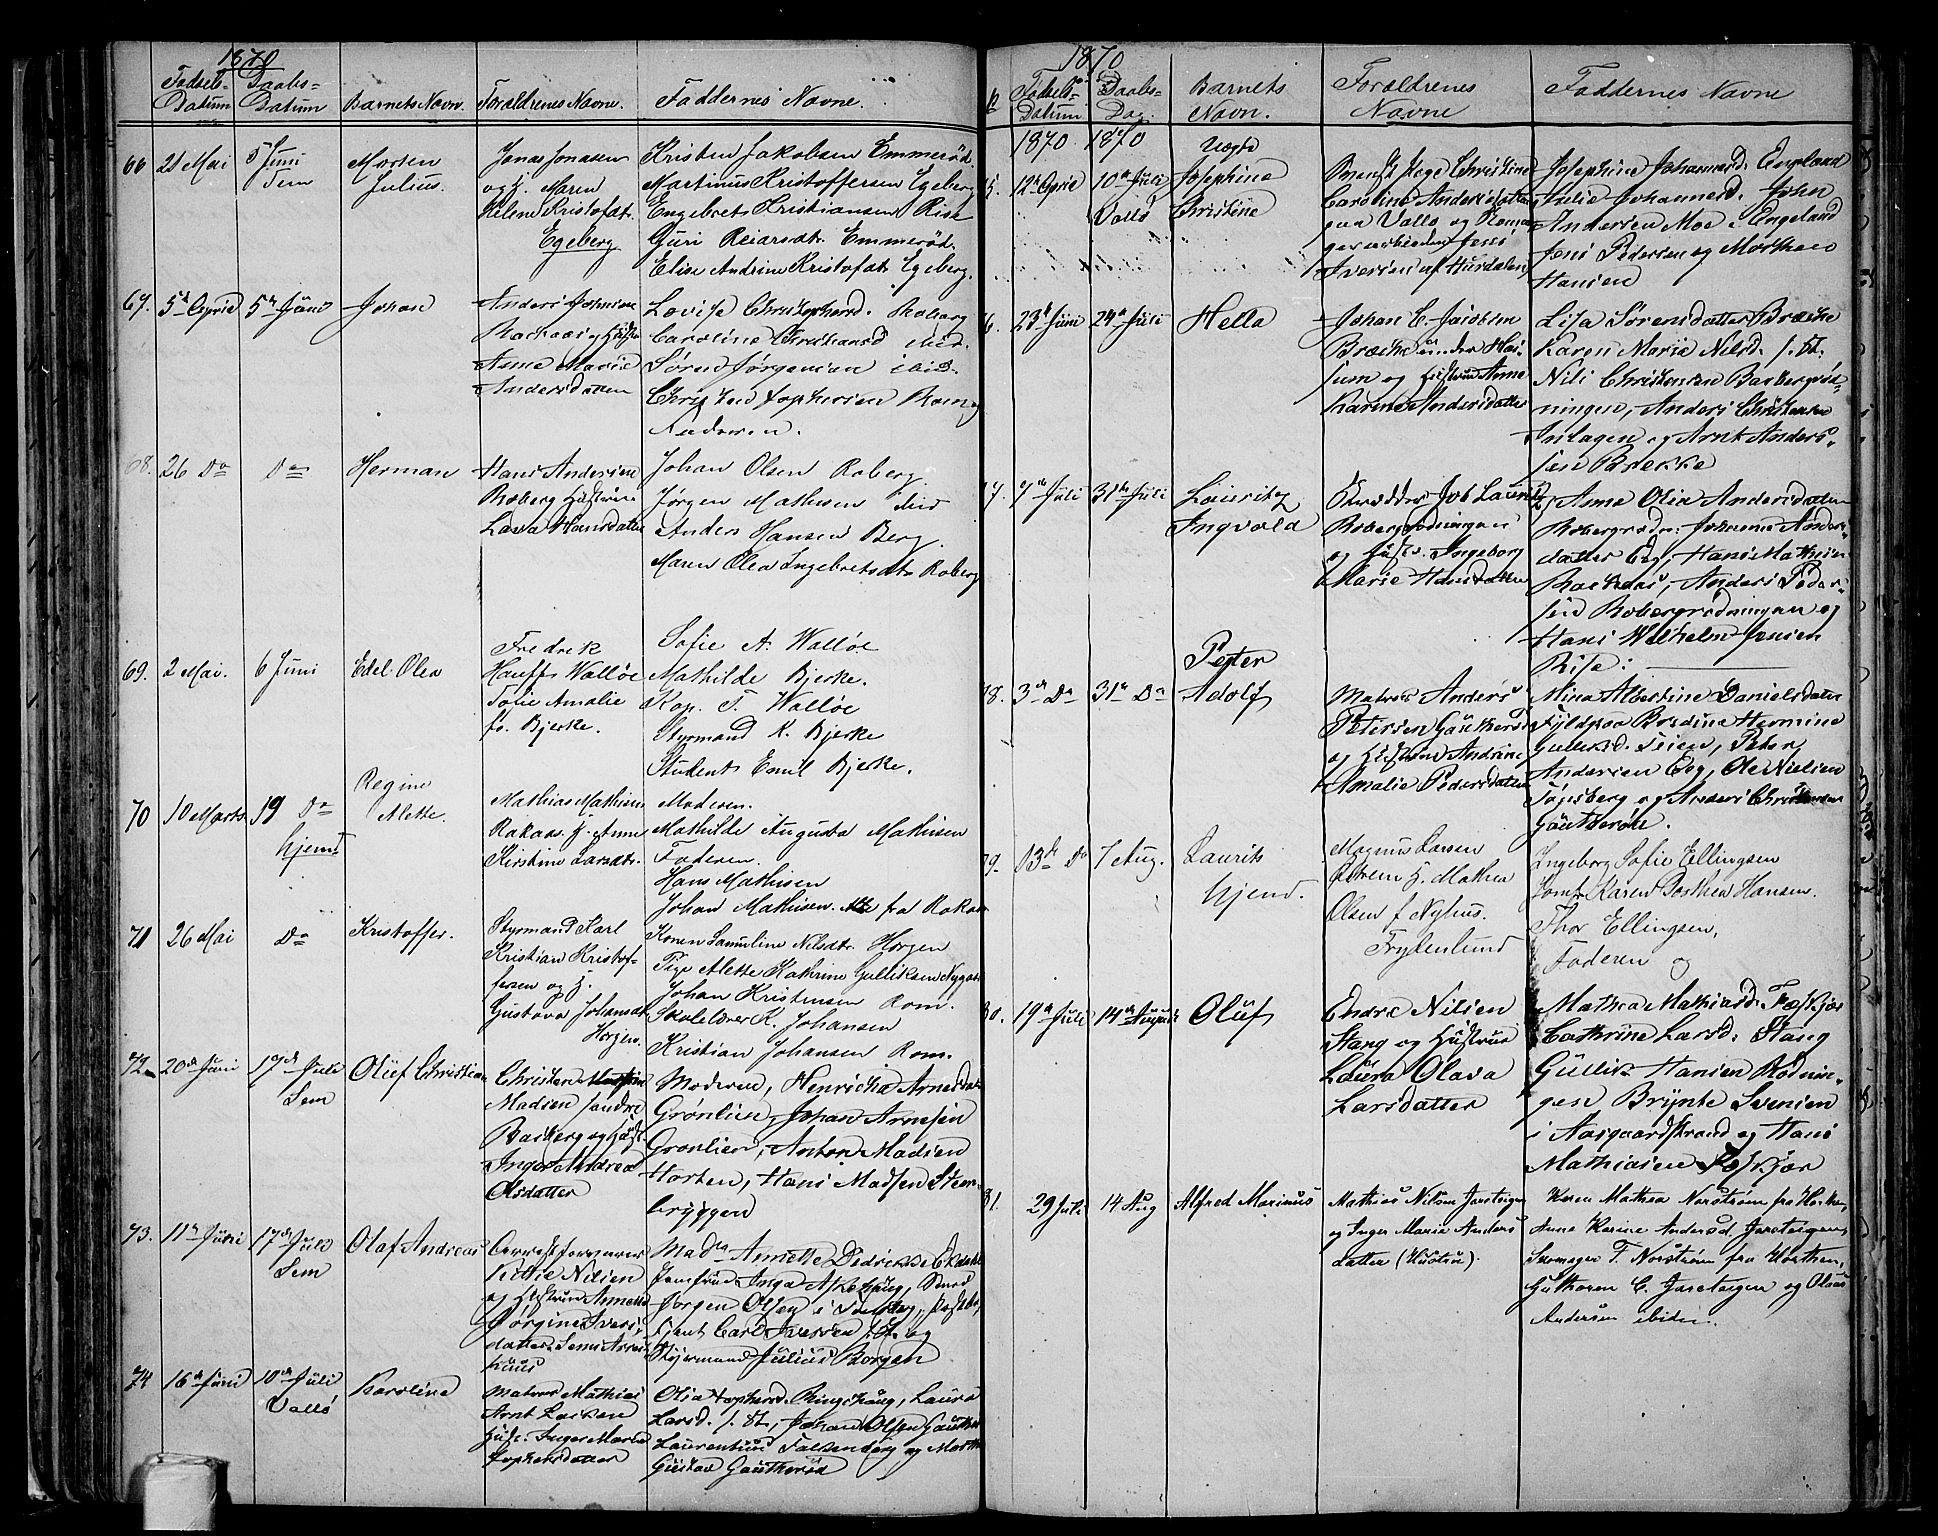 1870
Fødsels- Daabs-
Datum Datum Barnets Navn. Forældrenes Navne. Faddernes Navne.
66 21 Mai 5 Juni Sem Morten Julius.
Jonas Jonasen
og H. Maren
Helene Kristofat.
Egeberg
Kristen Jakobsen Emmerød.
Martinus Kristoffersen Egeberg
Engebret Kristiansen Rise
Guri Reiersdt. Emmerød.
Elise Andrine Kristofdt. Egeberg.
67. 5te April 5te Juni Johan
Anders Johnsen
Rackaas og Hustru
Anne Marie
Andersdatter
Lovise Christophersd. Roberg
Caroline Christiansd ibid.
Søren Jørgensen ibid.
Christen Tophersen Rom og
Faderen.
68. 26 Do Do Herman
Hans Andersen
Roberg Hustrue
Lava Hansdatter
Johan Olsen Roberg.
Jørgen Mathisen ibid
Anders Hansen Berg.
Maren Olea Ingebretsdt. Roberg
69. 2 Mai. 6 Juni Edel Olea
Fredrik
Hauff Walløe
Sofie Amalie
f. Bjerke.
Sofie A. Walløe
Mathilde Bjerke.
Kap. T. Walløe
Styrmand K. Bjerke
Student Emil Bjerke.
70 10 Marts 19 Do hjemd Regine Alette.
Mathias Mathisen
Rakaas. H. Anne
Kirstine Larsdt.
Moderen.
Mathilde Augusta Mathisen
Faderen.
Hans Mathisen
Johan Mathisen. fra Rakaas
71 26 Mai Do Kristoffer.
Styrmand Karl
Kristian Kristof-
fersen og H.
Gustava Johansdt
Horgen.
Karen Samueline Nilsdt. Horgen
Pige Alette Kathrine Gulliksen Nygaa
Johan Kristensen Rom.
Skolelærer K. Johansen
Kristian Johansen Rom.
72. 20de Juni 17de Juli Sem Oluf Christian
Christen
Madsen søndre
Basberg og Hust.
Inger Andrea
Olsdatter
Moderen, Henricha Arnesdat
Grønlien, Johan Arnesen
Grønlien, Anton Madsen
Horten, Hans Madsen Steen-
bryggen
73. 11te Juni 17de Juli Sem Olaf Andreas
Arrestforvarer
Kittil Nilsen
og Hustru Annette
Jørgine Ivers-
datter, Sems Arrest-
huus
Madm Annette Dedrikke
Jomfru Inga
Jørgen Olsen i
tjent Carl Iversen f. St. og
Styrmand Julius Borgen
74 16de Juni 10de Juli Vallø Karoline
Matros Mathias
Arnt Larsen
Hust. Inger Marie
Tophersdatter
Olia Tophersd. Ringshaug, Laura
Larsd. f. St., Johan Olsen Gauther
Laurentius Falkenberg og
Gustav Gautherød
1870
№ Fødsels- Datum Daabs- Dag. Barnets Navn. Forældrenes Navne Faddernes Navne
1870 1870 Uægte
75. 12te April 10de Juli Vallø Josephine Christine
Pige Christine
Caroline Andersdatter
paa Vallø og
Jens
Iversen af Hurdalen
Josephine Johannesd. Engeland
Julie Johannesd.
Andersen Moe, Engeland
Jens Pedersen og Mathias
Hansen
76. 23de Juni 24de Juli Hella
Johan E. Jacobsen
Bræche under Has-
sum og Hustru Anne
Karine Andersdatter
Lisa Sørensdatter Bræche
Karen Marie Nilsd. f. St.
Nils Christensen Basbergrød-
ningen, Anders Christensen
Indlagen og Arnt Anders-
sen Brekke
77. 7de Juli 31te Juli Lauritz Ingvald
Skrædder Job Lauritz
Robergrødningen
og Hust. Ingeborg
Marie Hansdatter
Anne Olia Andersdatter
Robergrødn: Johanne Anders-
datter Eeg, Hans Mathisen
Rackaas, Anders Peder-
sen Robergrødningen og
Hans Wilhelm Jensen
Rise:
78. 3de Do 31te Do Peter Adolf
Matros Anders
Petersen Gautherød
og Hustru Andrine
Amalie Pedersdatter
Mina Albertine Danielsdatter
Fyldpaa Bredine Hermine
Gulliksd. Teien, Peter
Andersen Eeg, Ole Nielsen
Tønsberg og Anders Christensen
Gautherød.
79. 13de Do 7 Aug. Laurits hjemd.
Magnus Larsen
Ørsnes H. Mathea
Olsen f Nyhus.
Trylenlund
Ingeborg Sofie Ellingsen
Jomfr Karen Dorthea Hansen.
Thor Ellingsen,
Faderen og
80. 19de Juli 14de August Oluf
Endre Nilsen
Stang og Hustrue
Laura Olava
Larsdatter
Mathea Mathiasd. Fosskjær
Cathrine Larsd. Stang
Gullik Hansen Rødnin-
gen Brynte Svensen
i Aasgaardstrand og Hans
Mathiasen Fosskjær
81. 29 Juli 14 Aug Alfred Marinus
Mathias Nilsen Jareteigen
og Inger Marie Anders
datter (Hustru).
Karen Mathea Norstrøm fra Horten,
Anne Karine Andersd. Jareteigen,
Skomager T. Norstrøm fra Horten,
Guthorm C. Jareteigen og Olaus
Andersen ibidem.